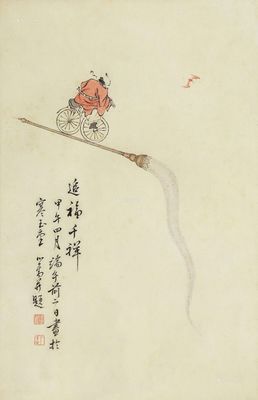 追福千祥
甲午四月端午前二日畫於
寒玉堂 心畬并題